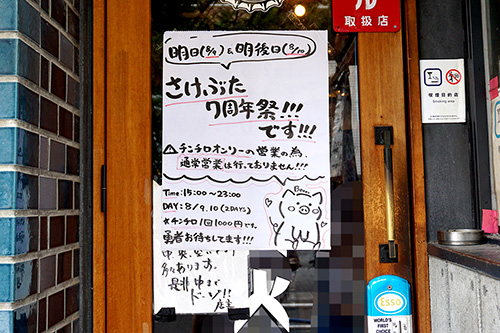 ル
取扱店
明日(8/9)&明後日(8/10)
さけぶた
7周年祭!!!
です!!!
⚠チンチロオンリーの営業の為、
通常営業は行っておりません!!!
Time:15:00~23:00
DAY:8/9,10(2DAYS)
※チンチロ1回1000円です。
勇者お待ちしてます!!!
Boo~
中央、
多々あります。
是非中まで
ド〜ゾ!!
店主
火
喫煙目的店
Smoking area
Esso
WORLD'S
FIRST
CHOICE